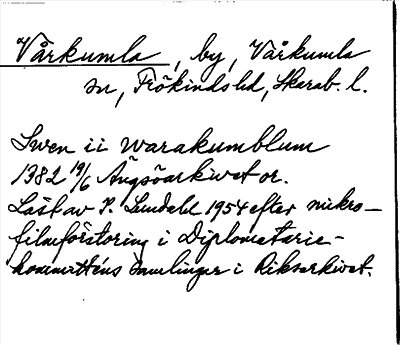 Vårkumla, by, Vårkumla
sn, Frökinds hd, Skarab. l.
Swen ii warakumblum
1382 19/6 Ängsöarkivet or.
Läst av P. Lundahl 1954 efter mikro-
filmförstoring i Diplomatarie-
kommitténs samlingar i Riksarkivet.